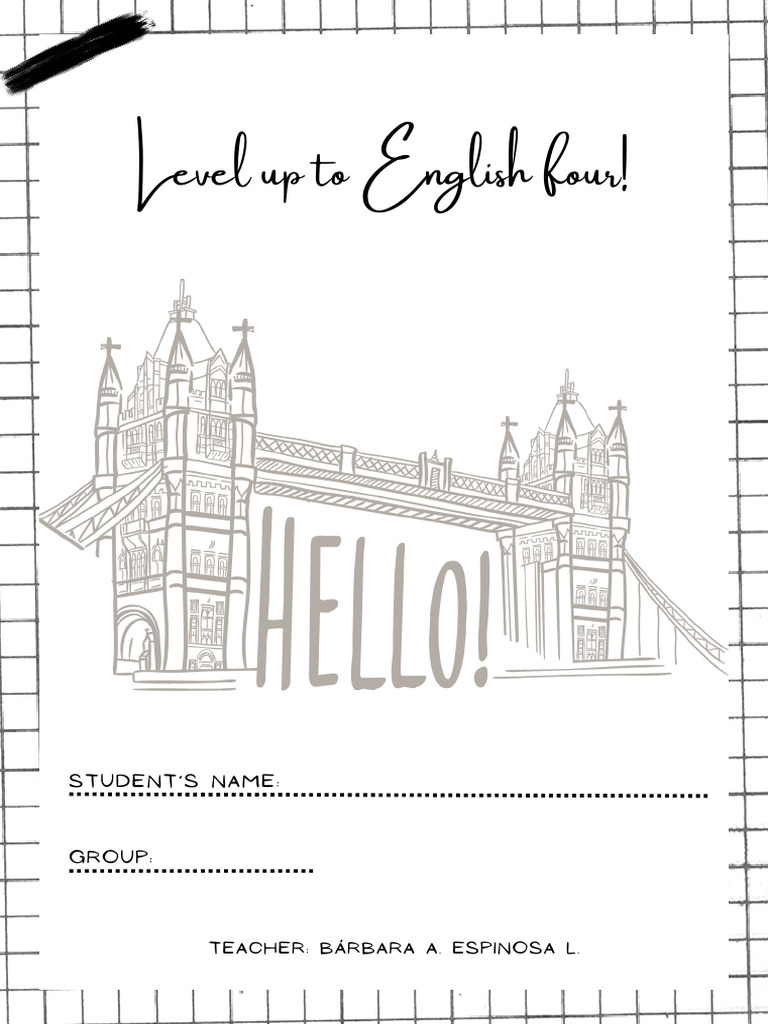 Level up to English four!
HELLO!
STUDENT'S NAME:
GROUP:
TEACHER: BÁRBARA A. ESPINOSA L.